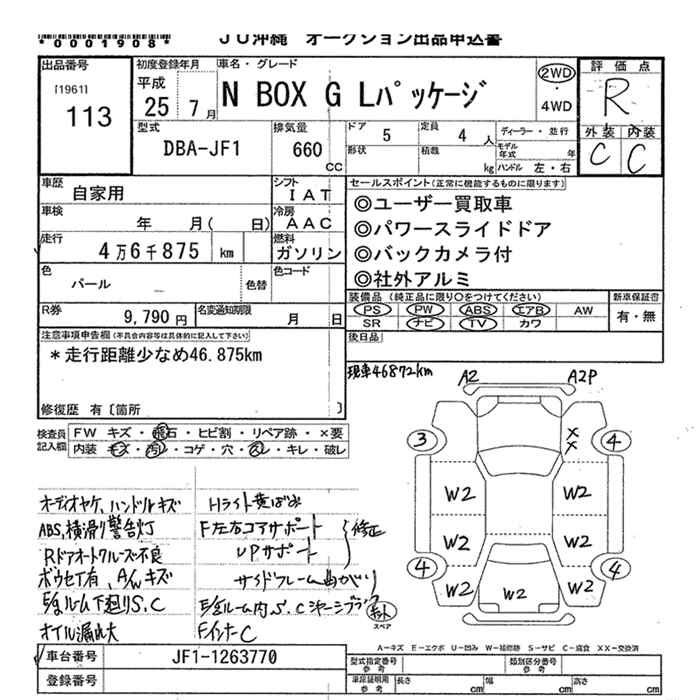 *0001908*
JU沖縄 オークション出品申込書
出品番号
[1961]
113
初度登録年月
平成
25 7月
車名・グレード
N BOX G Lパッケージ
2WD
・
4WD
評価点
R
外装 内装
C C
型式
DBA-JF1
排気量
660
CC
ドア 5
定員 4 人
ディーラー・並行
形状
積載 kg
モデル年式 年
ハンドル 左・右
車歴
自家用
シフト
IAT
車検
年 月( 日)
冷房
AAC
走行
4万6千875 km
燃料
ガソリン
色
パール
色替
色コード
R券
9,790円
名変通知期限
月 日
セールスポイント(正常に機能するものに限ります)
◎ユーザー買取車
◎パワースライドドア
◎バックカメラ付
◎社外アルミ
装備品(純正品に限り○をつけてください)
新車保証書
PS PW ABS エアB AW
SR ナビ TV カワ
有・無
後日品
注意事項申告欄(不具合内容等は具体的に記入して下さい)
*走行距離少なめ46.875km
修復歴 有〔箇所 〕
現車46872km
検査員記入欄
FW キズ・飛石・ヒビ割・リペア跡・×要
内装 キズ・汚レ・コゲ・穴・スレ・キレ・破レ
A2 A2P
3 × × 4
W2 W2
W2 W2
4 4
W2 W2 W2
オーディオヤケ、ハンドルキズ
ABS,横滑り警告灯
Rドアオートクルーズ不良
ボウセイ有、A/wキズ
オイル漏れ大
Hライト黄ばみ
F左右コアサポート
UPサポート
修正
サイドフレーム曲がり
FインナーC
スペア
A－キズ E－エクボ U－凹み W－補修跡 S－サビ C－腐食 XX－交換済
車台番号
JF1-1263770
登録番号
型式指定番号 参考
類別区分番号 参考
車庫証明用 参考
長さ cm
幅 cm
高さ cm